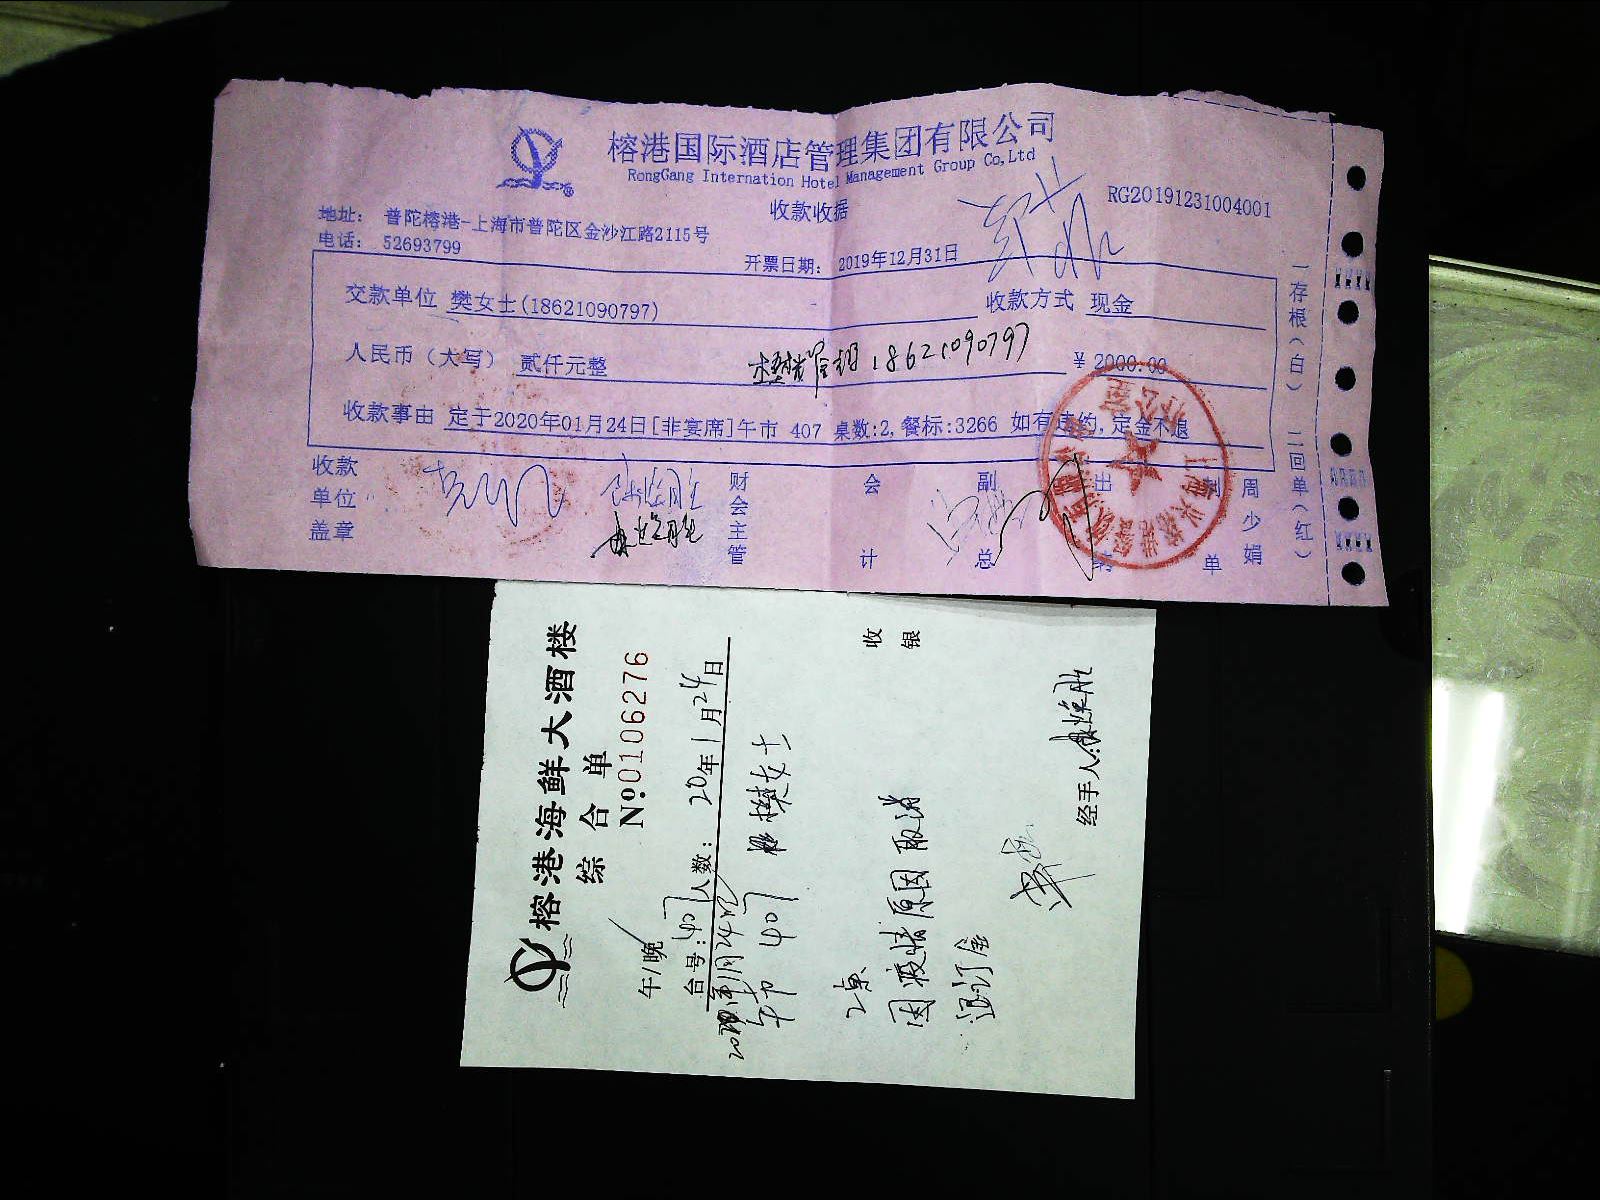 榕港国际酒店管理集团有限公司
RongGang Internation Hotel Management Group Co,Ltd
收款收据
RG20191231004001
地址： 普陀榕港-上海市普陀区金沙江路2115号
电话： 52693799
开票日期： 2019年12月31日
交款单位 樊女士(18621090797) 收款方式 现金
人民币（大写） 贰仟元整 18621090797 ￥2000.00
收款事由 定于2020年01月24日[非宴席]午市 407 桌数:2,餐标:3266 如有违约,定金不退
收款单位盖章
财会主管
会计
副总
出纳
制单
周少娟
一存根(白) 二回单(红)
榕港海鲜大酒楼
综合单
No:0106276
午/晚
台号:407 人数: 20年1月24日
午市 407 樊女士
2桌
因疫情原因取消
退订金
收银
经手人: